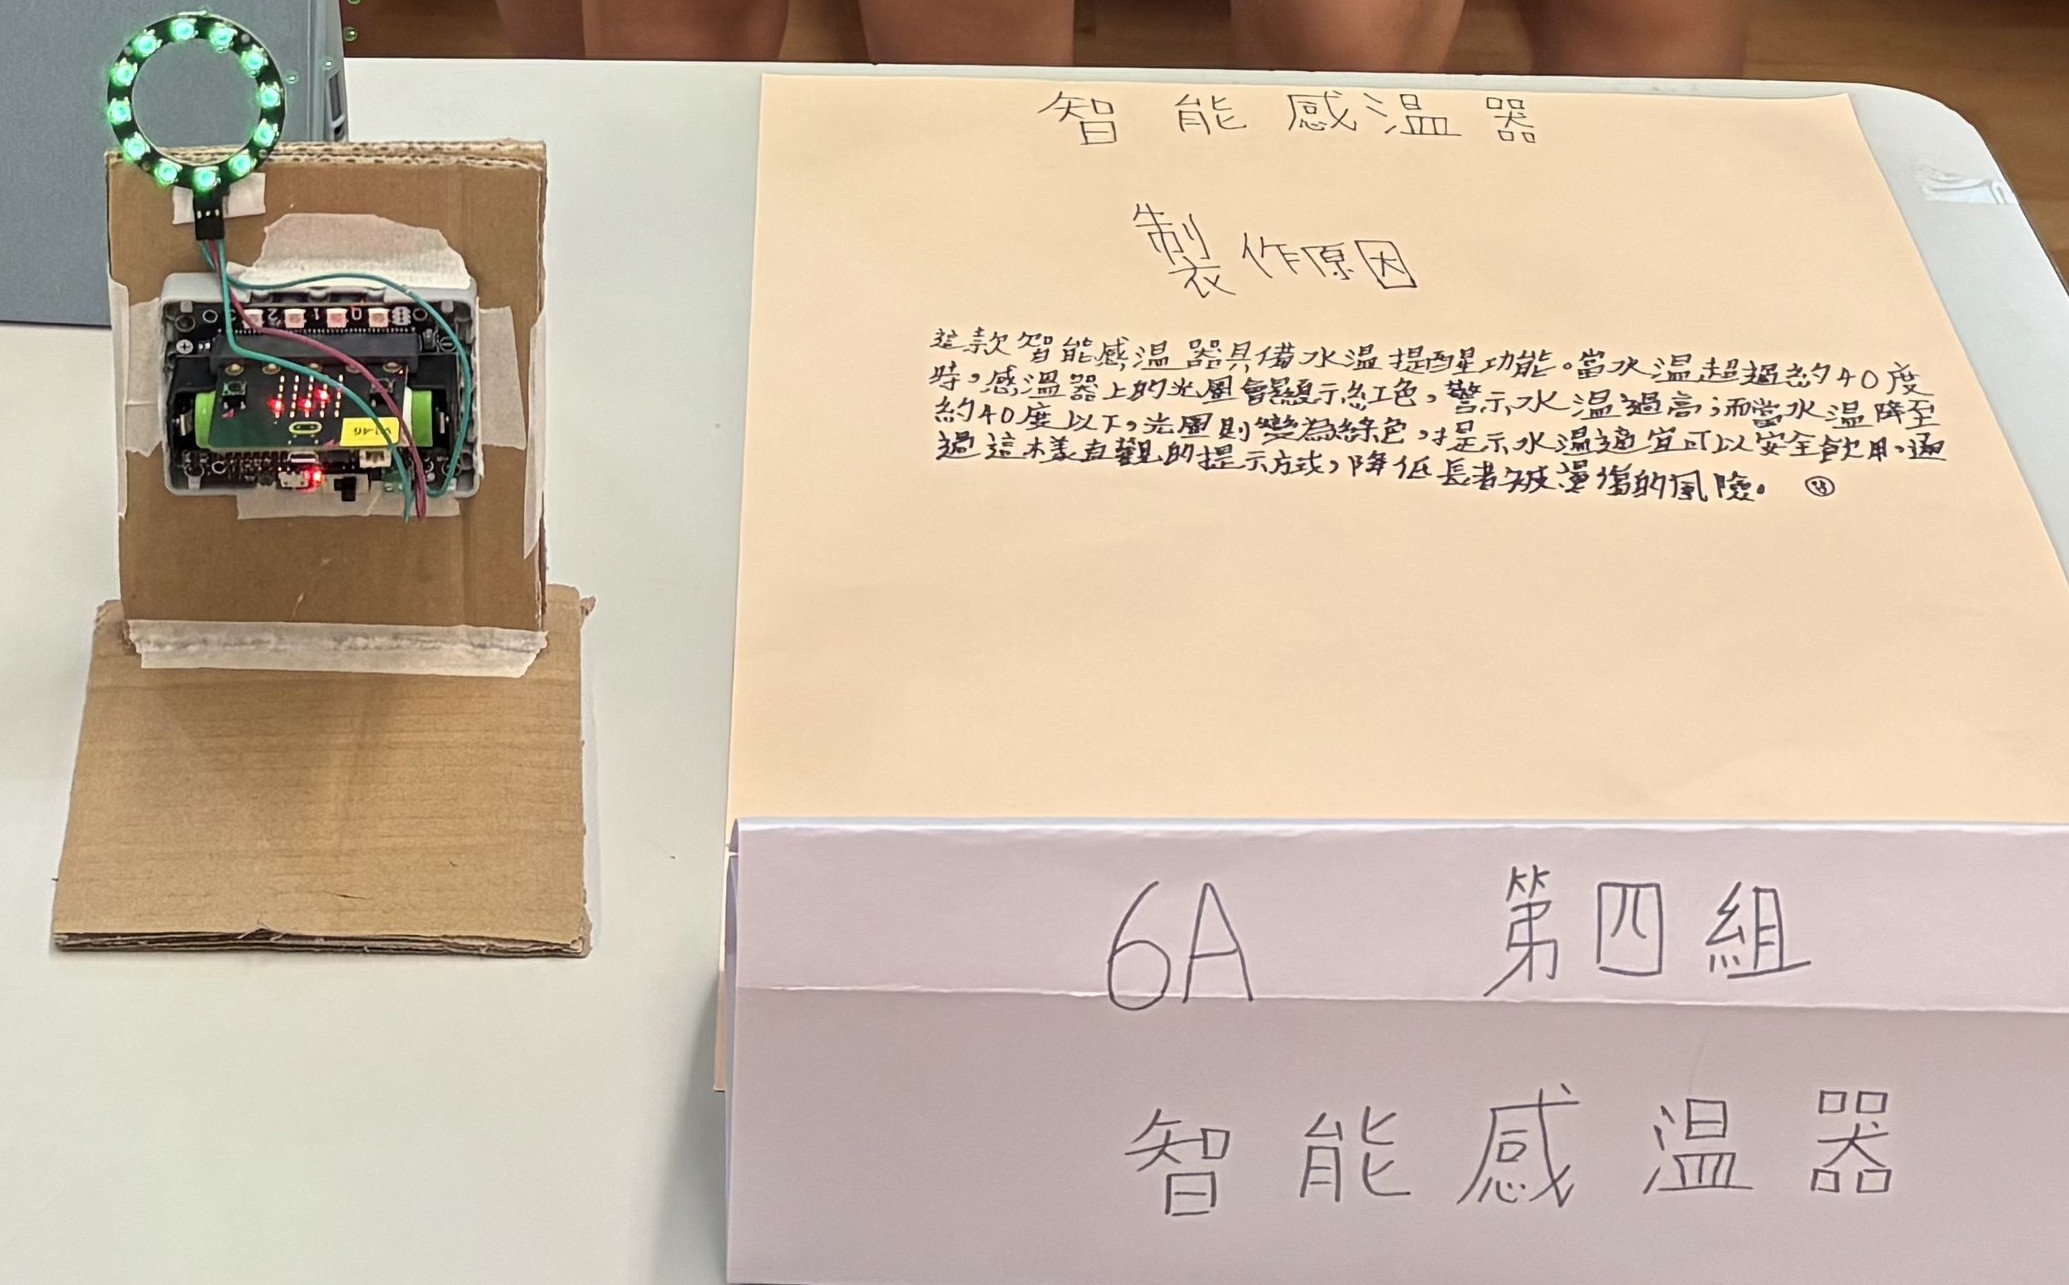 智能感温器
製作原因
這款智能感温器具備水温提醒功能。當水温超過約40度
時，感温器上的光圈會顯示紅色，警示水温過高；而當水温降至
約40度以下，光圈則變為綠色，提示水温適宜可以安全飲用，通
過這樣直觀的提示方式，降低長者被燙傷的風險。
6A 第四組
智能感温器